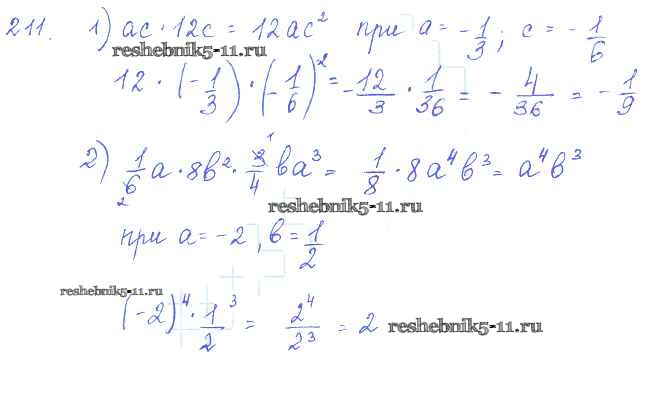 211. 1) ac · 12c = 12ac² при a = -1/3; c = -1/6
reshebnik5-11.ru
12 · (-1/3) · (-1/6)² = -12/3 · 1/36 = -4/36 = -1/9
2) 1/6 2 a · 8b² · 3 1/4 ba³ = 1/8 · 8a⁴b³ = a⁴b³
reshebnik5-11.ru
при a = -2, b = 1/2
reshebnik5-11.ru
(-2)⁴ · 1/2³ = 2⁴/2³ = 2
reshebnik5-11.ru